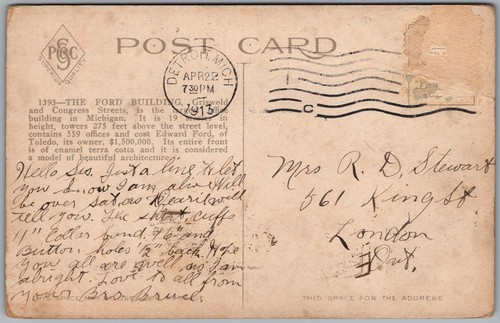 PSGC
SUPERIOR QUALITY
POST CARD
DETROIT, MICH
APR 22
7 30 PM
1913
C
1393—THE FORD BUILDING, Griswold
and Congress Streets, is the office
building in Michigan. It is 19 in
height, towers 275 feet above the street level,
contains 559 offices and cost Edward Ford, of
Toledo, its owner, $1,500,000. Its entire front
is of enamel terra cotta and it is considered
a model of beautiful architecture.
Hello Sis. Just a line to let
you know I am alive. Will
be over Sat. as will
tell you. The shirt, cuffs
11" Collar band 16" and
Button holes 2" back. Hope
you all are well as I am
alright. Love to all from
Your Bro Bruce.
Mrs R. D. Stewart
561 King St.
London
Ont.
THIS SPACE FOR THE ADDRESS